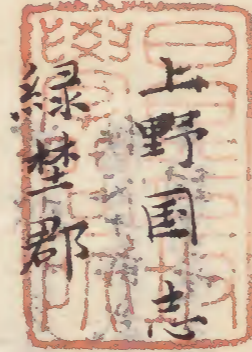 上野国志
緑埜郡